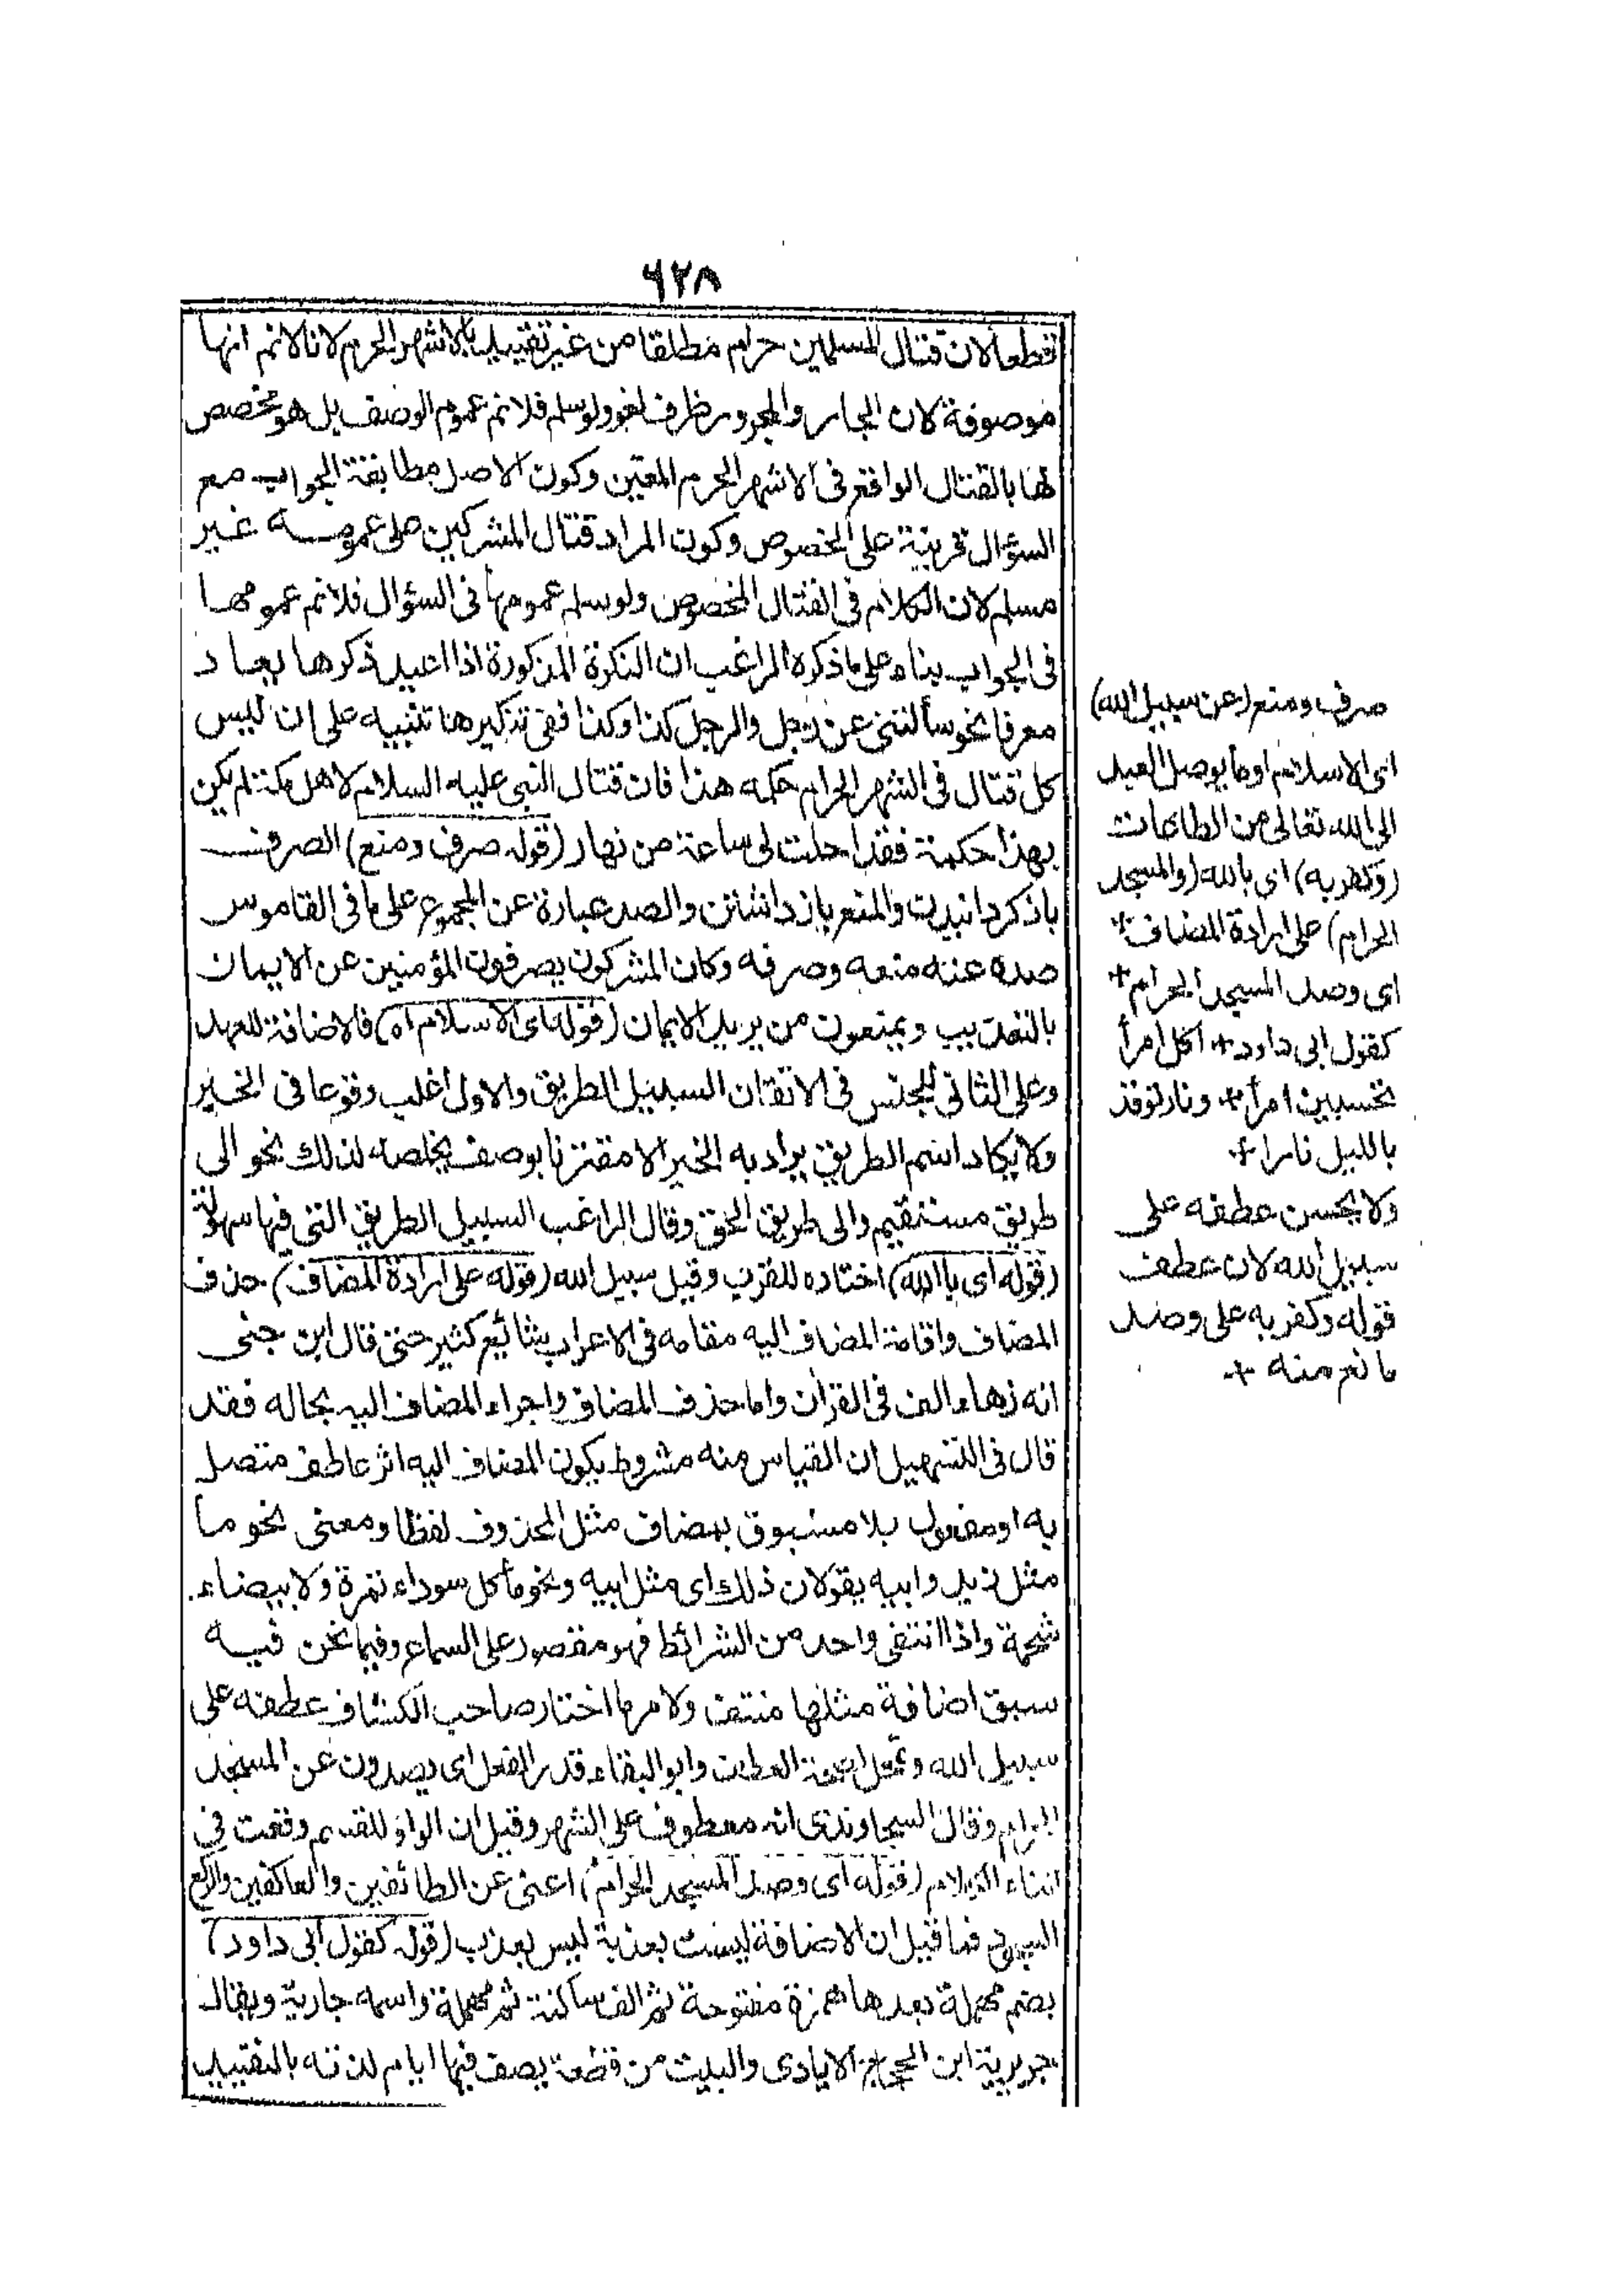 ٦٢٨
قطعا لان قتال المسلمين حرام مطلقا من غير تقييد بالاشهر الحرم لانا لانم انها
موصوفة لان الجار والمجرور ظرف لغو ولوسلم فلانم عموم الوصف بل هو مخصص
لها بالقتال الواقع فى الاشهر الحرم المعين وكون الاصل مطابقة الجواب مع
السؤال قرينة على الخصوص وكون المراد قتال المشركين على عمومه غير
مسلم لان الكلام فى القتال المخصوص ولو سلم عمومها فى السؤال فلانم عمومها
فى الجواب بناء على ما ذكره الراغب ان النكرة المذكورة اذا اعيد ذكرها يعاد
معرفا نحو سألتنى عن رجل والرجل كذا وكذا ففى تنكيرهنا تنبيه على ان ليس
كل قتال فى الشهر الحرام حكمه هذا فان قتال النبى عليه السلام لاهل مكة لم يكن
بهذا حكمة فقد احلت لى ساعة من نهار (قوله صرف ومنع) الصرف
باذكردانيدن والمنع بازداشتن والصد عبارة عن المجموع على ما فى القاموس
صده عنه منعه وصرفه وكان المشركون يصرفون المؤمنين عن الايمان
بالتعذيب ويمنعون من يريد الايمان (قوله اى الاسلام اه) فالاضافة للعهد
وعلى الثانى للجنس فى الاتقان السبيل الطريق والاول اغلب وقوعا فى الخير
ولا يكاد اسم الطريق يراد به الخير الا مقترنا بوصف يخلصه لذلك نحو الى
طريق مستقيم والى طريق الحق وقال الراغب السبيل الطريق التى فيها سهولة
(قوله اى بالله) اختاره للقرب وقيل سبيل الله (قوله على ارادة المضاف) حذف
المضاف واقامة المضاف اليه مقامه فى الاعراب شائع كثير حتى قال ابن جنى
انه زهاء الف فى القرأن واما حذف المضاف واجراء المضاف اليه بحاله فقد
قال فى التسهيل ان القياس منه مشروط بكون المضاف اليه اثر عاطف متصل
به او مفصول بلا مسبوق بمضاف مثل المحذوف لفظا ومعنى نحو ما
مثل زيد وابيه يقولان ذلك اى مثل ابيه ونحو ما كل سوداء تمرة ولا بيضاء
شحمة واذا انتفى واحد من الشرائط فهو مقصور على السماع وفيما نحن فيه
سبق اضافة مثلها منتف ولا مرما اختار صاحب الكشاف عطفه على
سبيل الله وابو البقاء قدر الفعل اى يصدون عن المسجد
الحرام وقال السجاوندى انه معطوف على الشهر وقيل ان الواو للقسم وقعت فى
اثناء الكلام (قوله اى وصد المسجد الحرام) اعنى عن الطائفين والعاكفين والركع
السجود فما قيل ان الاضافة ليست بعذبة ليس بعذب (قوله كقول ابى داود)
بضم مهملة بعدها همزة مفتوحة ثم الف ساكنة ثم مهملة واسمه جارية ويقال
جويرية ابن الحجاج الايادى والبيت من قطعة يصف فيها ايام لذته بالتقييد
صرف ومنع (عن سبيل الله)
اى الاسلام اوما يوصل العبد
الى الله تعالى من الطاعات
(وكفر به) اى بالله (والمسجد
الحرام) على ارادة المضاف+
اى وصد المسجد الحرام+
كقول ابى داود+ اكل امرأ
تحسبين امرأ+ ونار توقد
بالليل نارا+
ولا يحسن عطفه على
سبيل الله لان عطف
قوله وكفر به على وصد
مانع منه +